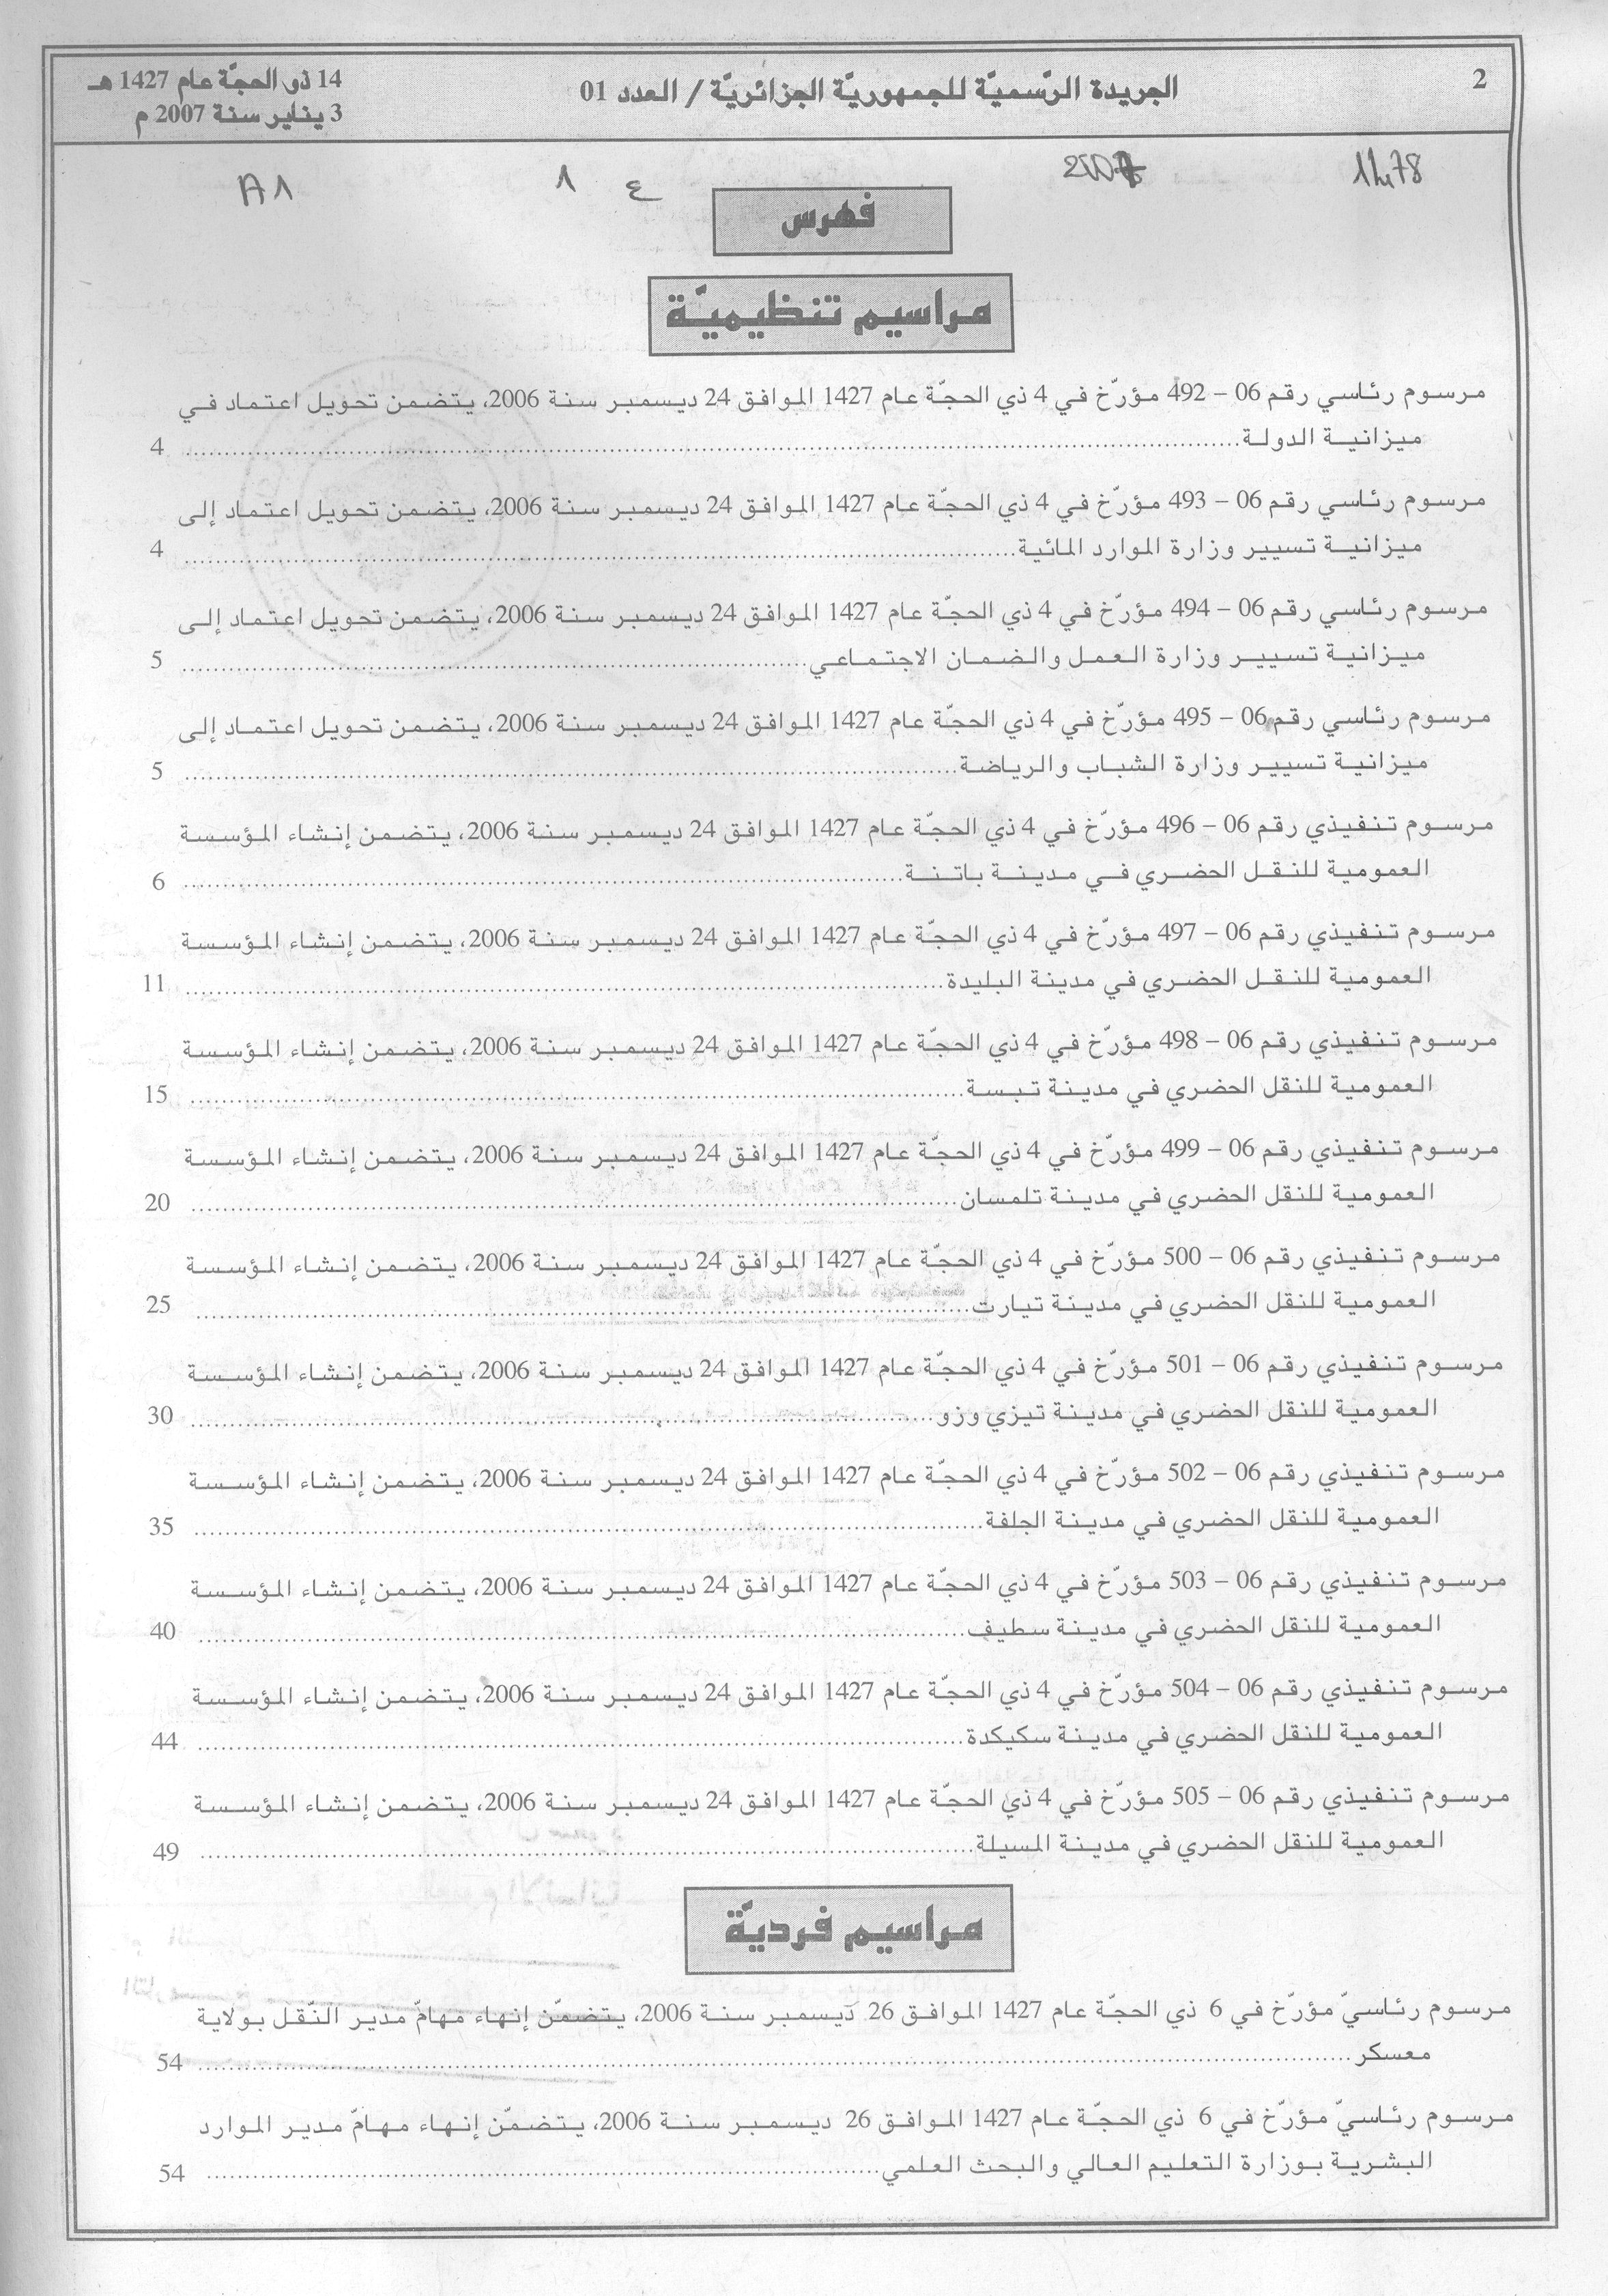 2
الجريدة الرّسميّة للجمهوريّة الجزائريّة / العدد 01
14 ذو الحجّة عام 1427 هـ
3 يناير سنة 2007 م
1478 2007 ع 1 A1
فهرس
مراسيم تنظيميّة
مرسوم رئاسي رقم 06 – 492 مؤرّخ في 4 ذي الحجّة عام 1427 الموافق 24 ديسمبر سنة 2006، يتضمن تحويل اعتماد في
ميزانية الدولة........ 4
مرسوم رئاسي رقم 06 – 493 مؤرّخ في 4 ذي الحجّة عام 1427 الموافق 24 ديسمبر سنة 2006، يتضمن تحويل اعتماد إلى
ميزانية تسيير وزارة الموارد المائية........ 4
مرسوم رئاسي رقم 06 – 494 مؤرّخ في 4 ذي الحجّة عام 1427 الموافق 24 ديسمبر سنة 2006، يتضمن تحويل اعتماد إلى
ميزانية تسيير وزارة العمل والضمان الاجتماعي........ 5
مرسوم رئاسي رقم 06 – 495 مؤرّخ في 4 ذي الحجّة عام 1427 الموافق 24 ديسمبر سنة 2006، يتضمن تحويل اعتماد إلى
ميزانية تسيير وزارة الشباب والرياضة........ 5
مرسوم تنفيذي رقم 06 – 496 مؤرّخ في 4 ذي الحجّة عام 1427 الموافق 24 ديسمبر سنة 2006، يتضمن إنشاء المؤسسة
العمومية للنقل الحضري في مدينة باتنة........ 6
مرسوم تنفيذي رقم 06 – 497 مؤرّخ في 4 ذي الحجّة عام 1427 الموافق 24 ديسمبر سنة 2006، يتضمن إنشاء المؤسسة
العمومية للنقل الحضري في مدينة البليدة........ 11
مرسوم تنفيذي رقم 06 – 498 مؤرّخ في 4 ذي الحجّة عام 1427 الموافق 24 ديسمبر سنة 2006، يتضمن إنشاء المؤسسة
العمومية للنقل الحضري في مدينة تبسة........ 15
مرسوم تنفيذي رقم 06 – 499 مؤرّخ في 4 ذي الحجّة عام 1427 الموافق 24 ديسمبر سنة 2006، يتضمن إنشاء المؤسسة
العمومية للنقل الحضري في مدينة تلمسان........ 20
مرسوم تنفيذي رقم 06 – 500 مؤرّخ في 4 ذي الحجّة عام 1427 الموافق 24 ديسمبر سنة 2006، يتضمن إنشاء المؤسسة
العمومية للنقل الحضري في مدينة تيارت........ 25
مرسوم تنفيذي رقم 06 – 501 مؤرّخ في 4 ذي الحجّة عام 1427 الموافق 24 ديسمبر سنة 2006، يتضمن إنشاء المؤسسة
العمومية للنقل الحضري في مدينة تيزي وزو........ 30
مرسوم تنفيذي رقم 06 – 502 مؤرّخ في 4 ذي الحجّة عام 1427 الموافق 24 ديسمبر سنة 2006، يتضمن إنشاء المؤسسة
العمومية للنقل الحضري في مدينة الجلفة........ 35
مرسوم تنفيذي رقم 06 – 503 مؤرّخ في 4 ذي الحجّة عام 1427 الموافق 24 ديسمبر سنة 2006، يتضمن إنشاء المؤسسة
العمومية للنقل الحضري في مدينة سطيف........ 40
مرسوم تنفيذي رقم 06 – 504 مؤرّخ في 4 ذي الحجّة عام 1427 الموافق 24 ديسمبر سنة 2006، يتضمن إنشاء المؤسسة
العمومية للنقل الحضري في مدينة سكيكدة........ 44
مرسوم تنفيذي رقم 06 – 505 مؤرّخ في 4 ذي الحجّة عام 1427 الموافق 24 ديسمبر سنة 2006، يتضمن إنشاء المؤسسة
العمومية للنقل الحضري في مدينة المسيلة........ 49
مراسيم فرديّة
مرسوم رئاسيّ مؤرّخ في 6 ذي الحجّة عام 1427 الموافق 26 ديسمبر سنة 2006، يتضمّن إنهاء مهامّ مدير النّقل بولاية
معسكر........ 54
مرسوم رئاسيّ مؤرّخ في 6 ذي الحجّة عام 1427 الموافق 26 ديسمبر سنة 2006، يتضمّن إنهاء مهامّ مدير الموارد
البشرية بوزارة التعليم العالي والبحث العلمي........ 54